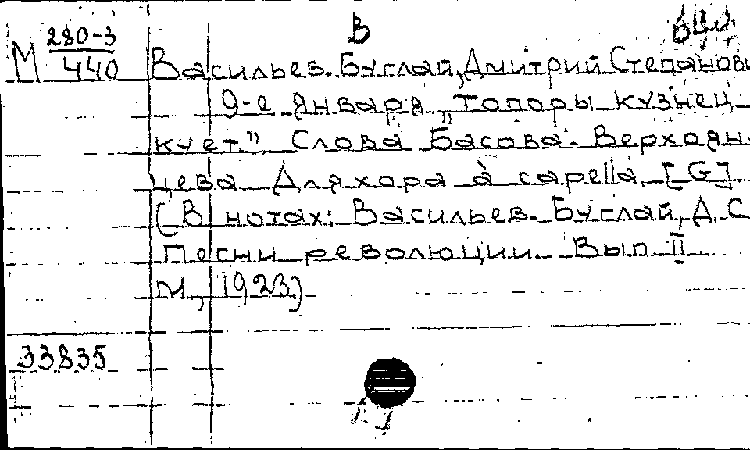 В
М 280-3
440
Васильев-Буглай, Дмитрий Степанови
9-е января „Топоры кузнец
кует." Слова Басова-Верхоян-
цева Для хора à capella. [G]
(В нотах: Васильев-Буглай, Д. С.
Песни революции Вып. II
М., 1923)
33835